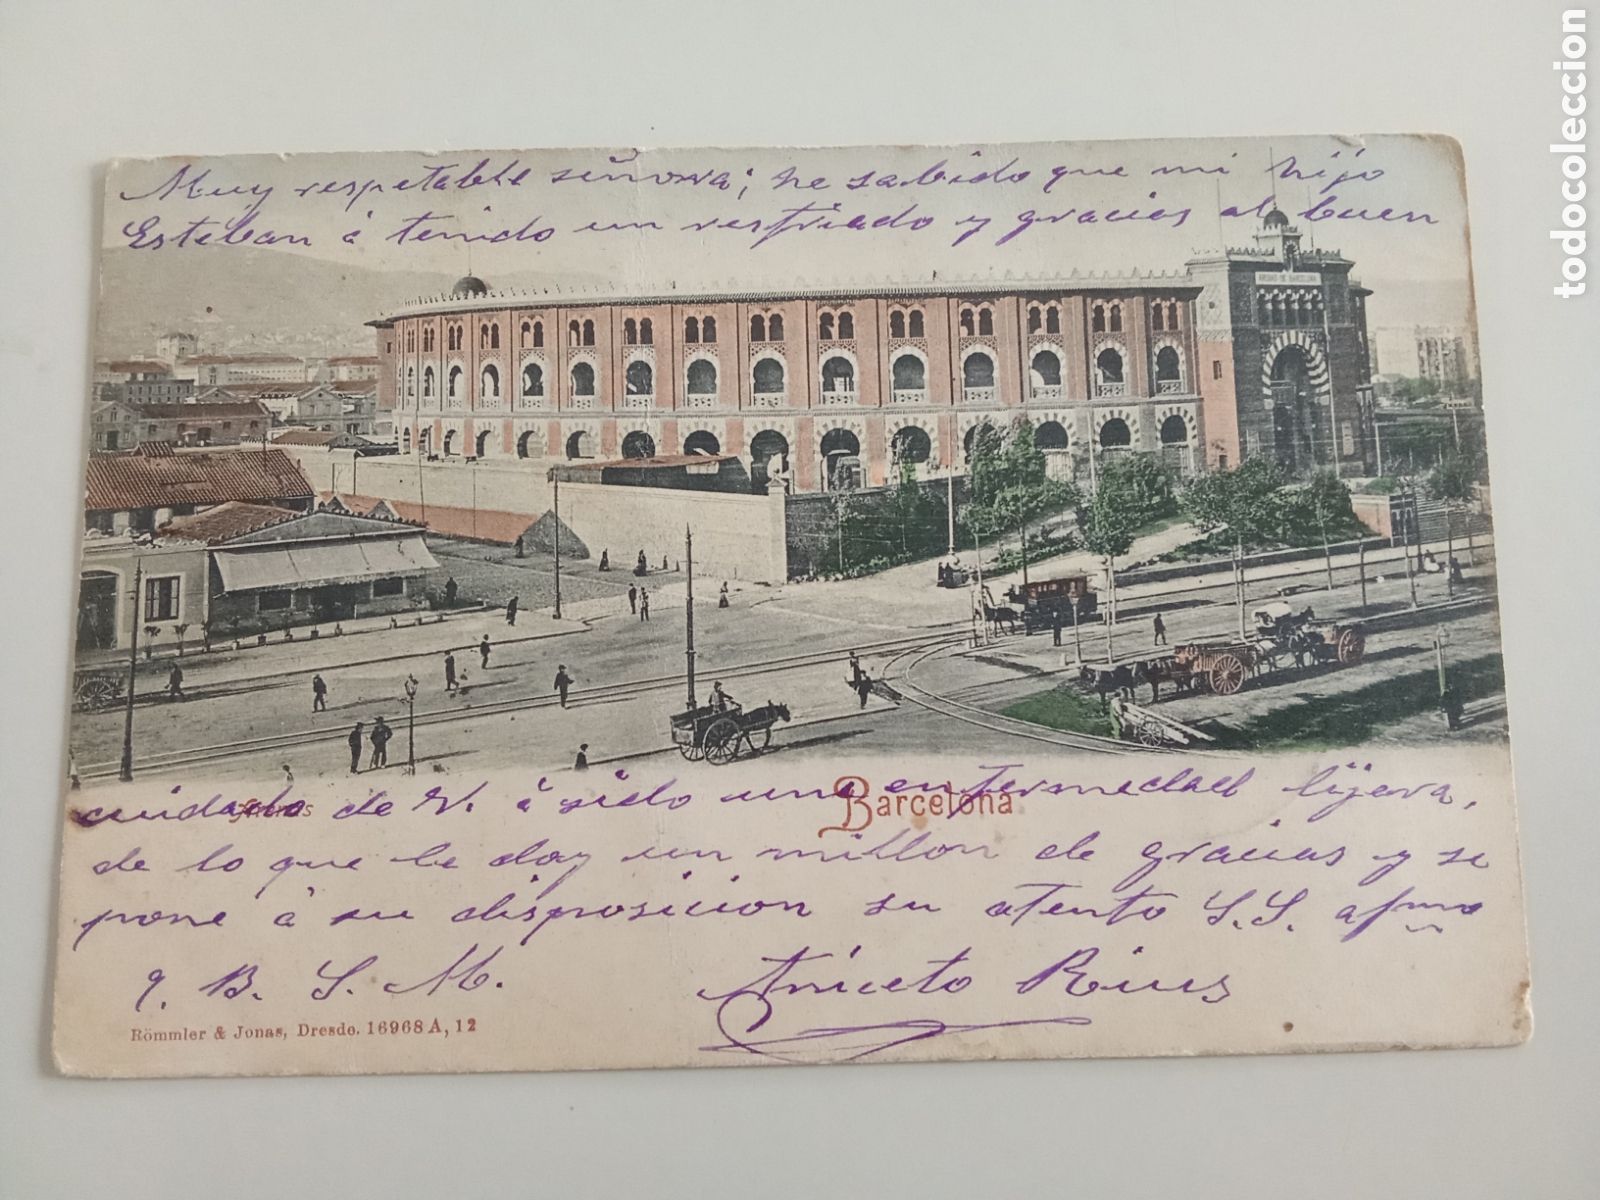 Muy respetable señora; he sabido que mi hijo
Esteban á tenido un resfriado y gracias al buen
ARENAS DE BARCELONA
cuidado de V. á sido una enfermedad lijera,
Arenas
Barcelona
de lo que le doy un millon de gracias y se
pone á su disposicion su atento S.S. afmo
q. B. S. M.
Aniceto Rius
Römmler & Jonas, Dresde. 16968 A, 12
todocoleccion